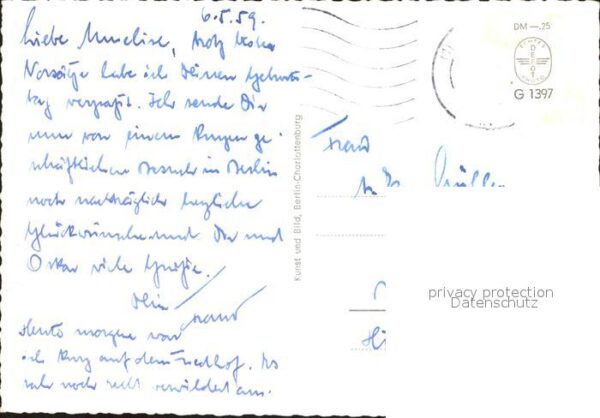 6.5.59.
Liebe Annelise, trotz bester
Vorsätze habe ich Deinen Geburts-
tag verpaßt. Ich sende Dir
nun von einem kurzen ge-
schäftlichen Besuch in Berlin
noch nachträglich herzliche
Glückwünsche und Dir und
Oskar viele Grüße.
Dein
Heute morgen war
ich kurz auf dem Friedhof. Es
sah noch recht verwildert aus.
Kunst und Bild, Berlin-Charlottenburg
DM —.25
DEBOT
G 1397
privacy protection
Datenschutz